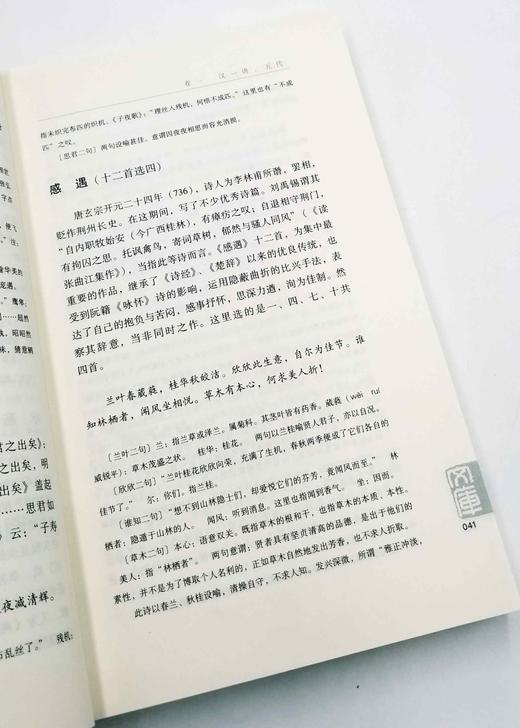 卷一 汉—唐、五代
指未织完布匹的织机。《子夜歌》：“理丝入残机，何悟不成匹。”这里也有“不成
匹”之叹。
〔思君二句〕两句设喻甚佳。意谓因夜夜相思而容光消损。
感 遇（十二首选四）
唐玄宗开元二十四年（736），诗人为李林甫所谮，罢相，
贬作荆州长史。在这期间，写了不少优秀诗篇。刘禹锡谓其
“自内职牧始安（今广西桂林），有瘴疠之叹；自退相守荆门，
有拘囚之思。托讽禽鸟，寄词草树，郁然与骚人同风”（《读
张曲江集作》），当指此等诗而言。《感遇》十二首，为集中最
重要的作品，继承了《诗经》、《楚辞》以来的优良传统，也
受到阮籍《咏怀》诗的影响，运用隐蔽曲折的比兴手法，表
达了自己的抱负与苦闷，感事抒怀，思深力遒，洵为佳制。然
察其辞意，当非同时之作。这里选的是一、四、七、十共
四首。
兰叶春葳蕤，桂华秋皎洁。欣欣此生意，自尔为佳节。谁
知林栖者，闻风坐相悦。草木有本心，何求美人折！
〔兰叶二句〕兰：指兰草或泽兰。属菊科。其茎叶皆有药香。葳蕤（wēi ruí
威锐平）：草木茂盛之状。 桂华：桂花。 两句以兰桂喻贤人君子，亦以自况。
〔欣欣二句〕“兰叶桂花欣欣向荣，充满了生机，春秋两季便成了它们各自的
佳节了。” 尔：你们。指兰桂。
〔谁知二句〕“想不到山林隐士们，却爱悦它们的芬芳，竟闻风而至。” 林
栖者：隐遁于山林的人。 闻风：听到消息。这里也指闻到香气。 坐：因而。
〔草木二句〕本心：语意双关。既指草木的根和干，也指草木的本质、本性。
美人：指“林栖者”。 两句意谓：贤者具有坚贞清高的品德，是出于他们的
素性，并不是为了博取个人名利的，正如草木自然地发出芳香，也不求人折取。
此诗以春兰、秋桂设喻，清操自守，不求人知。发兴深微，所谓“雅正冲淡，
文库
041
君之出矣》
……思君如
云：“子寿
夜减清辉。
乱丝了。” 残机：